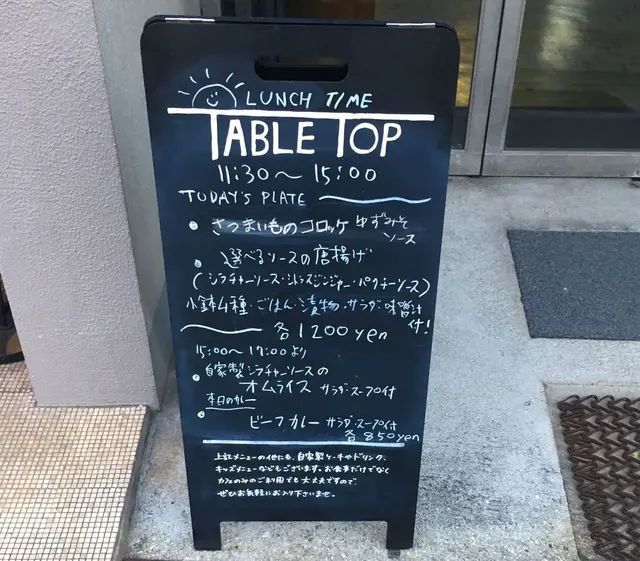 LUNCH TIME
TABLE TOP
11:30～15:00
TODAY'S PLATE
さつまいものコロッケ ゆずみそ
ソース
選べるソースの唐揚げ
(シラチャーソース・シトラスジンジャー・パクチーソース)
小鉢4種・ごはん・漬物・サラダ・味噌汁
付!
各1200yen
15:00～17:00より
自家製シラチャーソースの
オムライス サラダ・スープ付
本日のカレー
ビーフカレー サラダ・スープ付
各850yen
上記メニューの他にも、自家製ケーキやドリンク、
キッズメニューなどもございます。お食事だけでなく
カフェのみのご利用でも大丈夫ですので、
ぜひお気軽にお入り下さいませ。